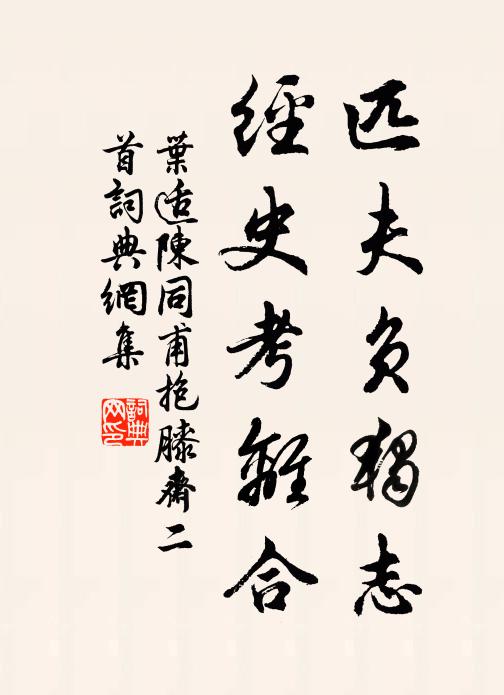 匹夫負獨志
經史考離合
葉适陳同甫抱膝齋二
首詞典網集
詞典
網印